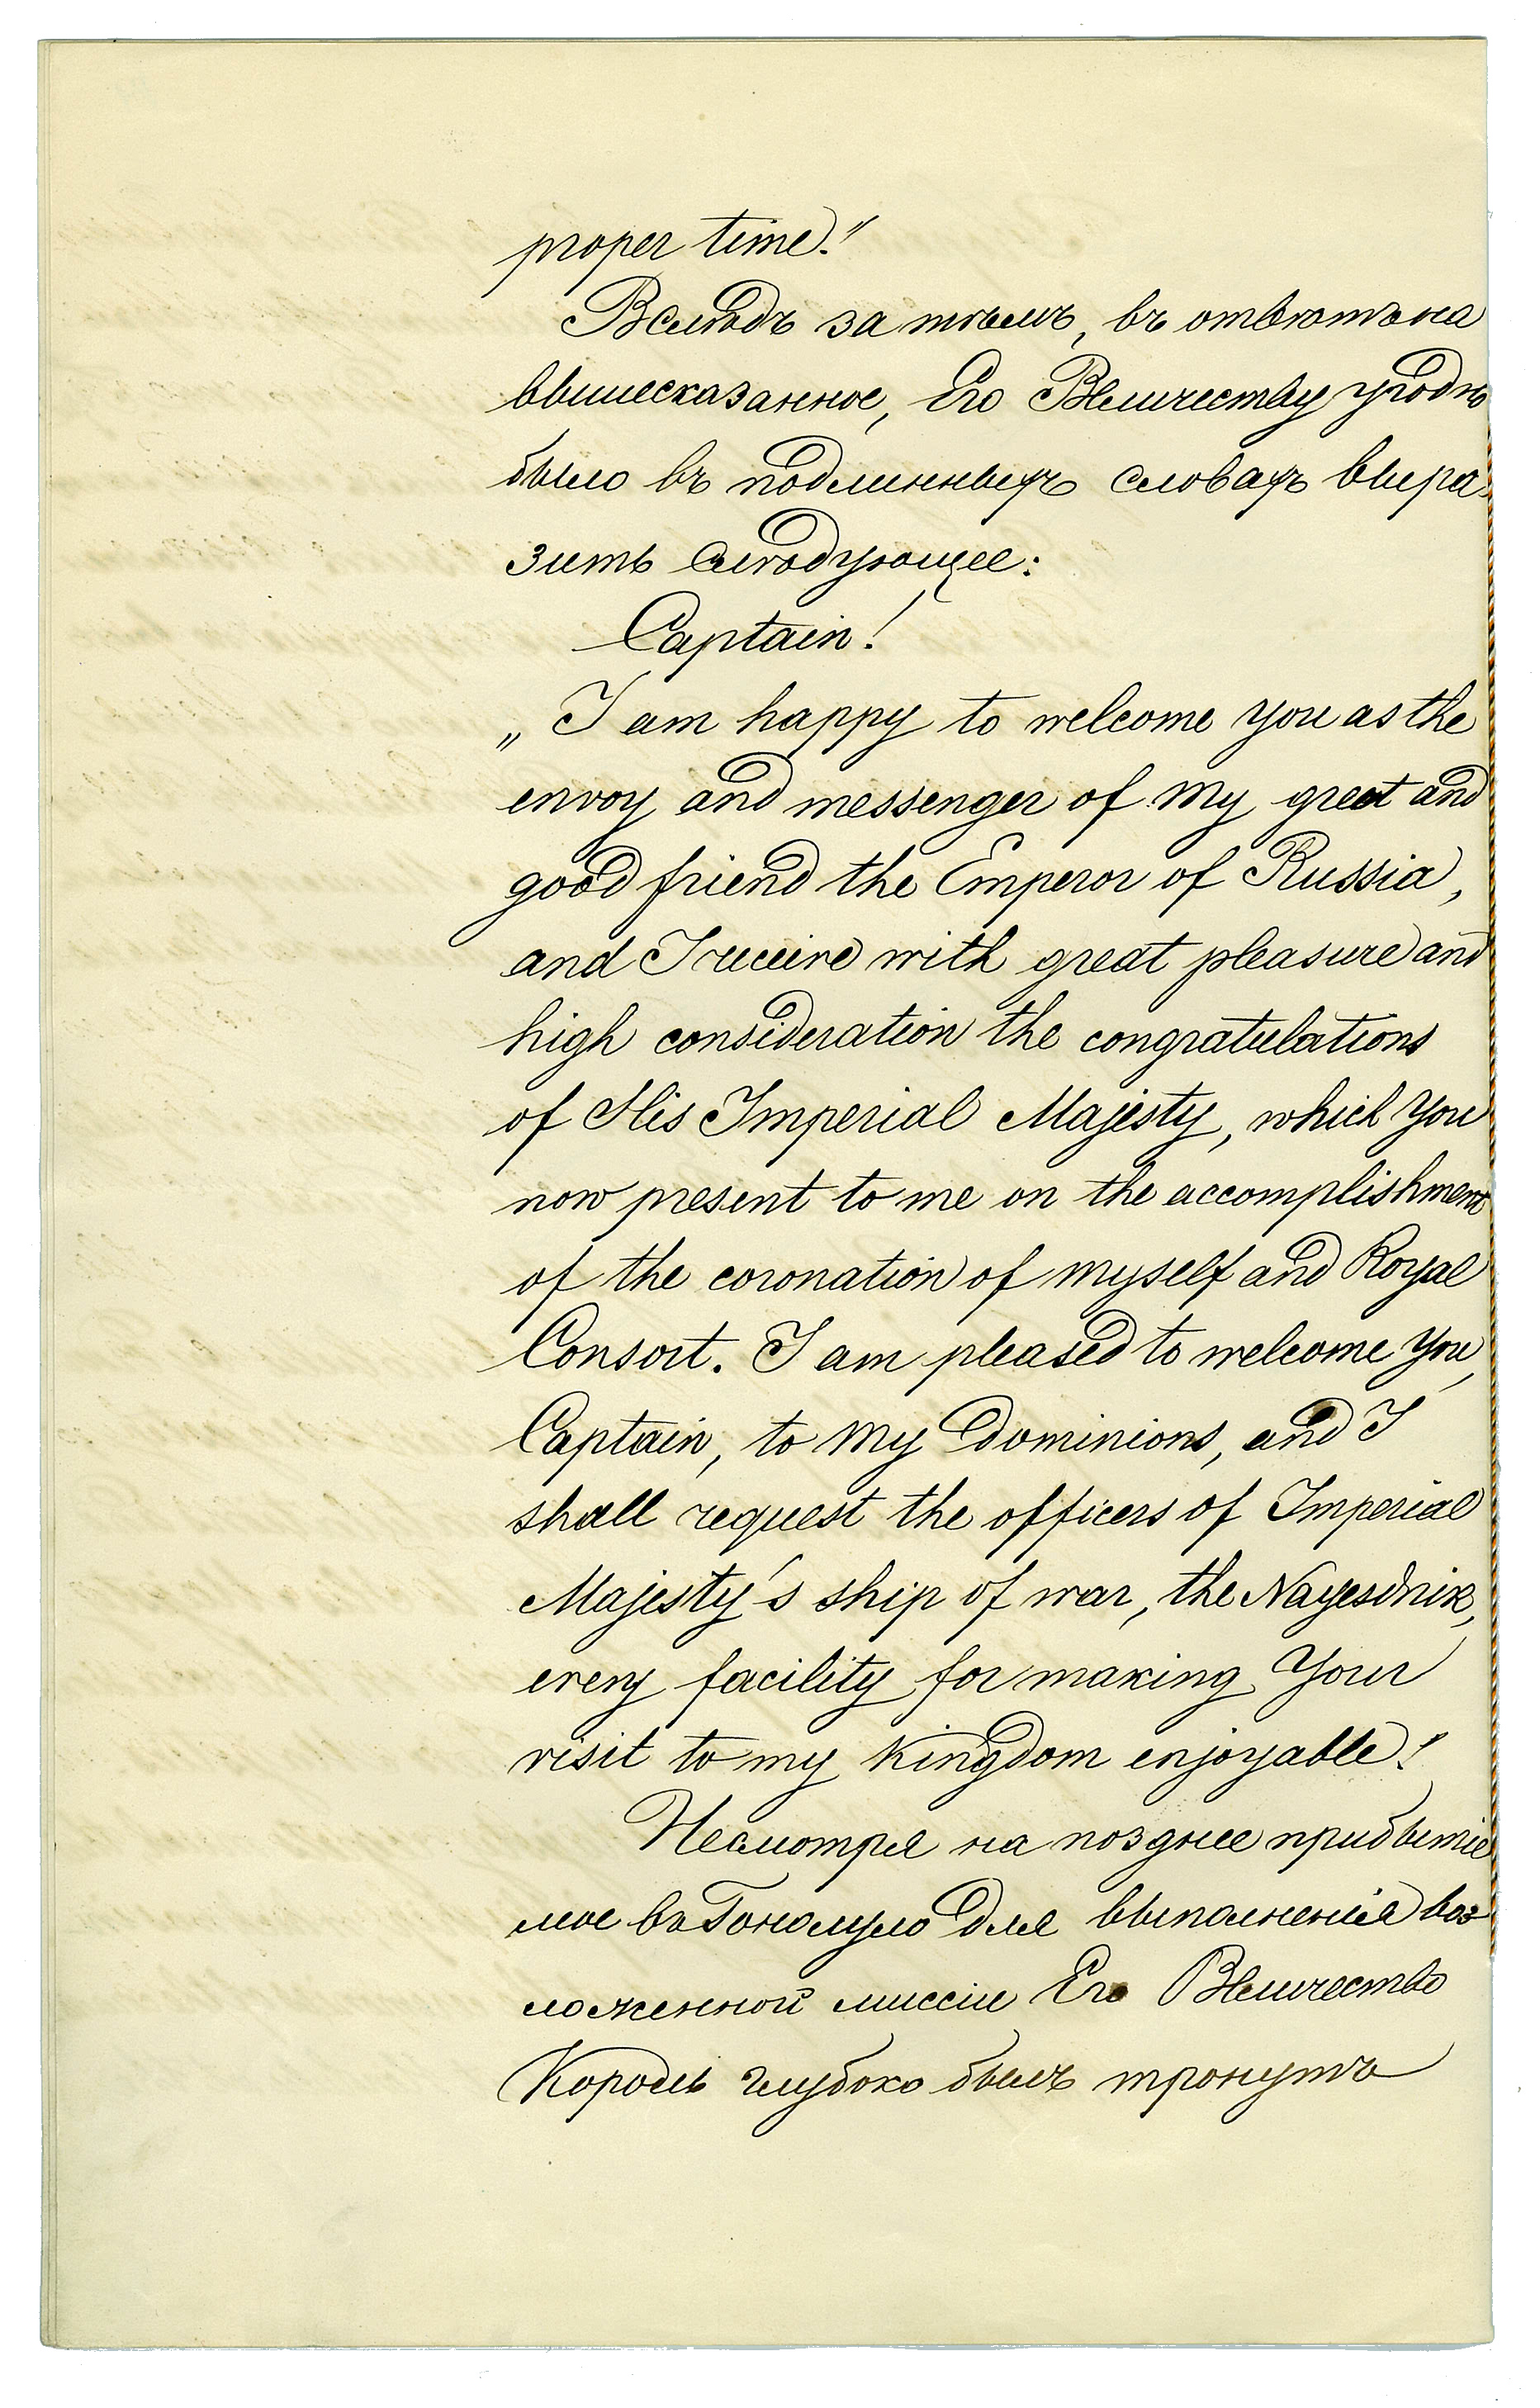 proper time."
Вслѣдъ за тѣмъ, въ отвѣтъ на
вышесказанное, Его Величеству угодно
было въ подлинныхъ словахъ выра-
зить слѣдующее:
Captain!
„I am happy to welcome you as the
envoy and messenger of my great and
good friend the Emperor of Russia,
and I receive with great pleasure and
high consideration the congratulations
of His Imperial Majesty, which you
now present to me on the accomplishment
of the coronation of myself and Royal
Consort. I am pleased to welcome you,
Captain, to my dominions, and I
shall request the officers of Imperial
Majesty's ship of war, the Nayesdnik,
every facility for making your
visit to my kingdom enjoyable!
Несмотря на позднее прибытіе
мое въ Гонолулу для выполненія воз-
ложенной миссіи Его Величество
Король глубоко былъ тронутъ